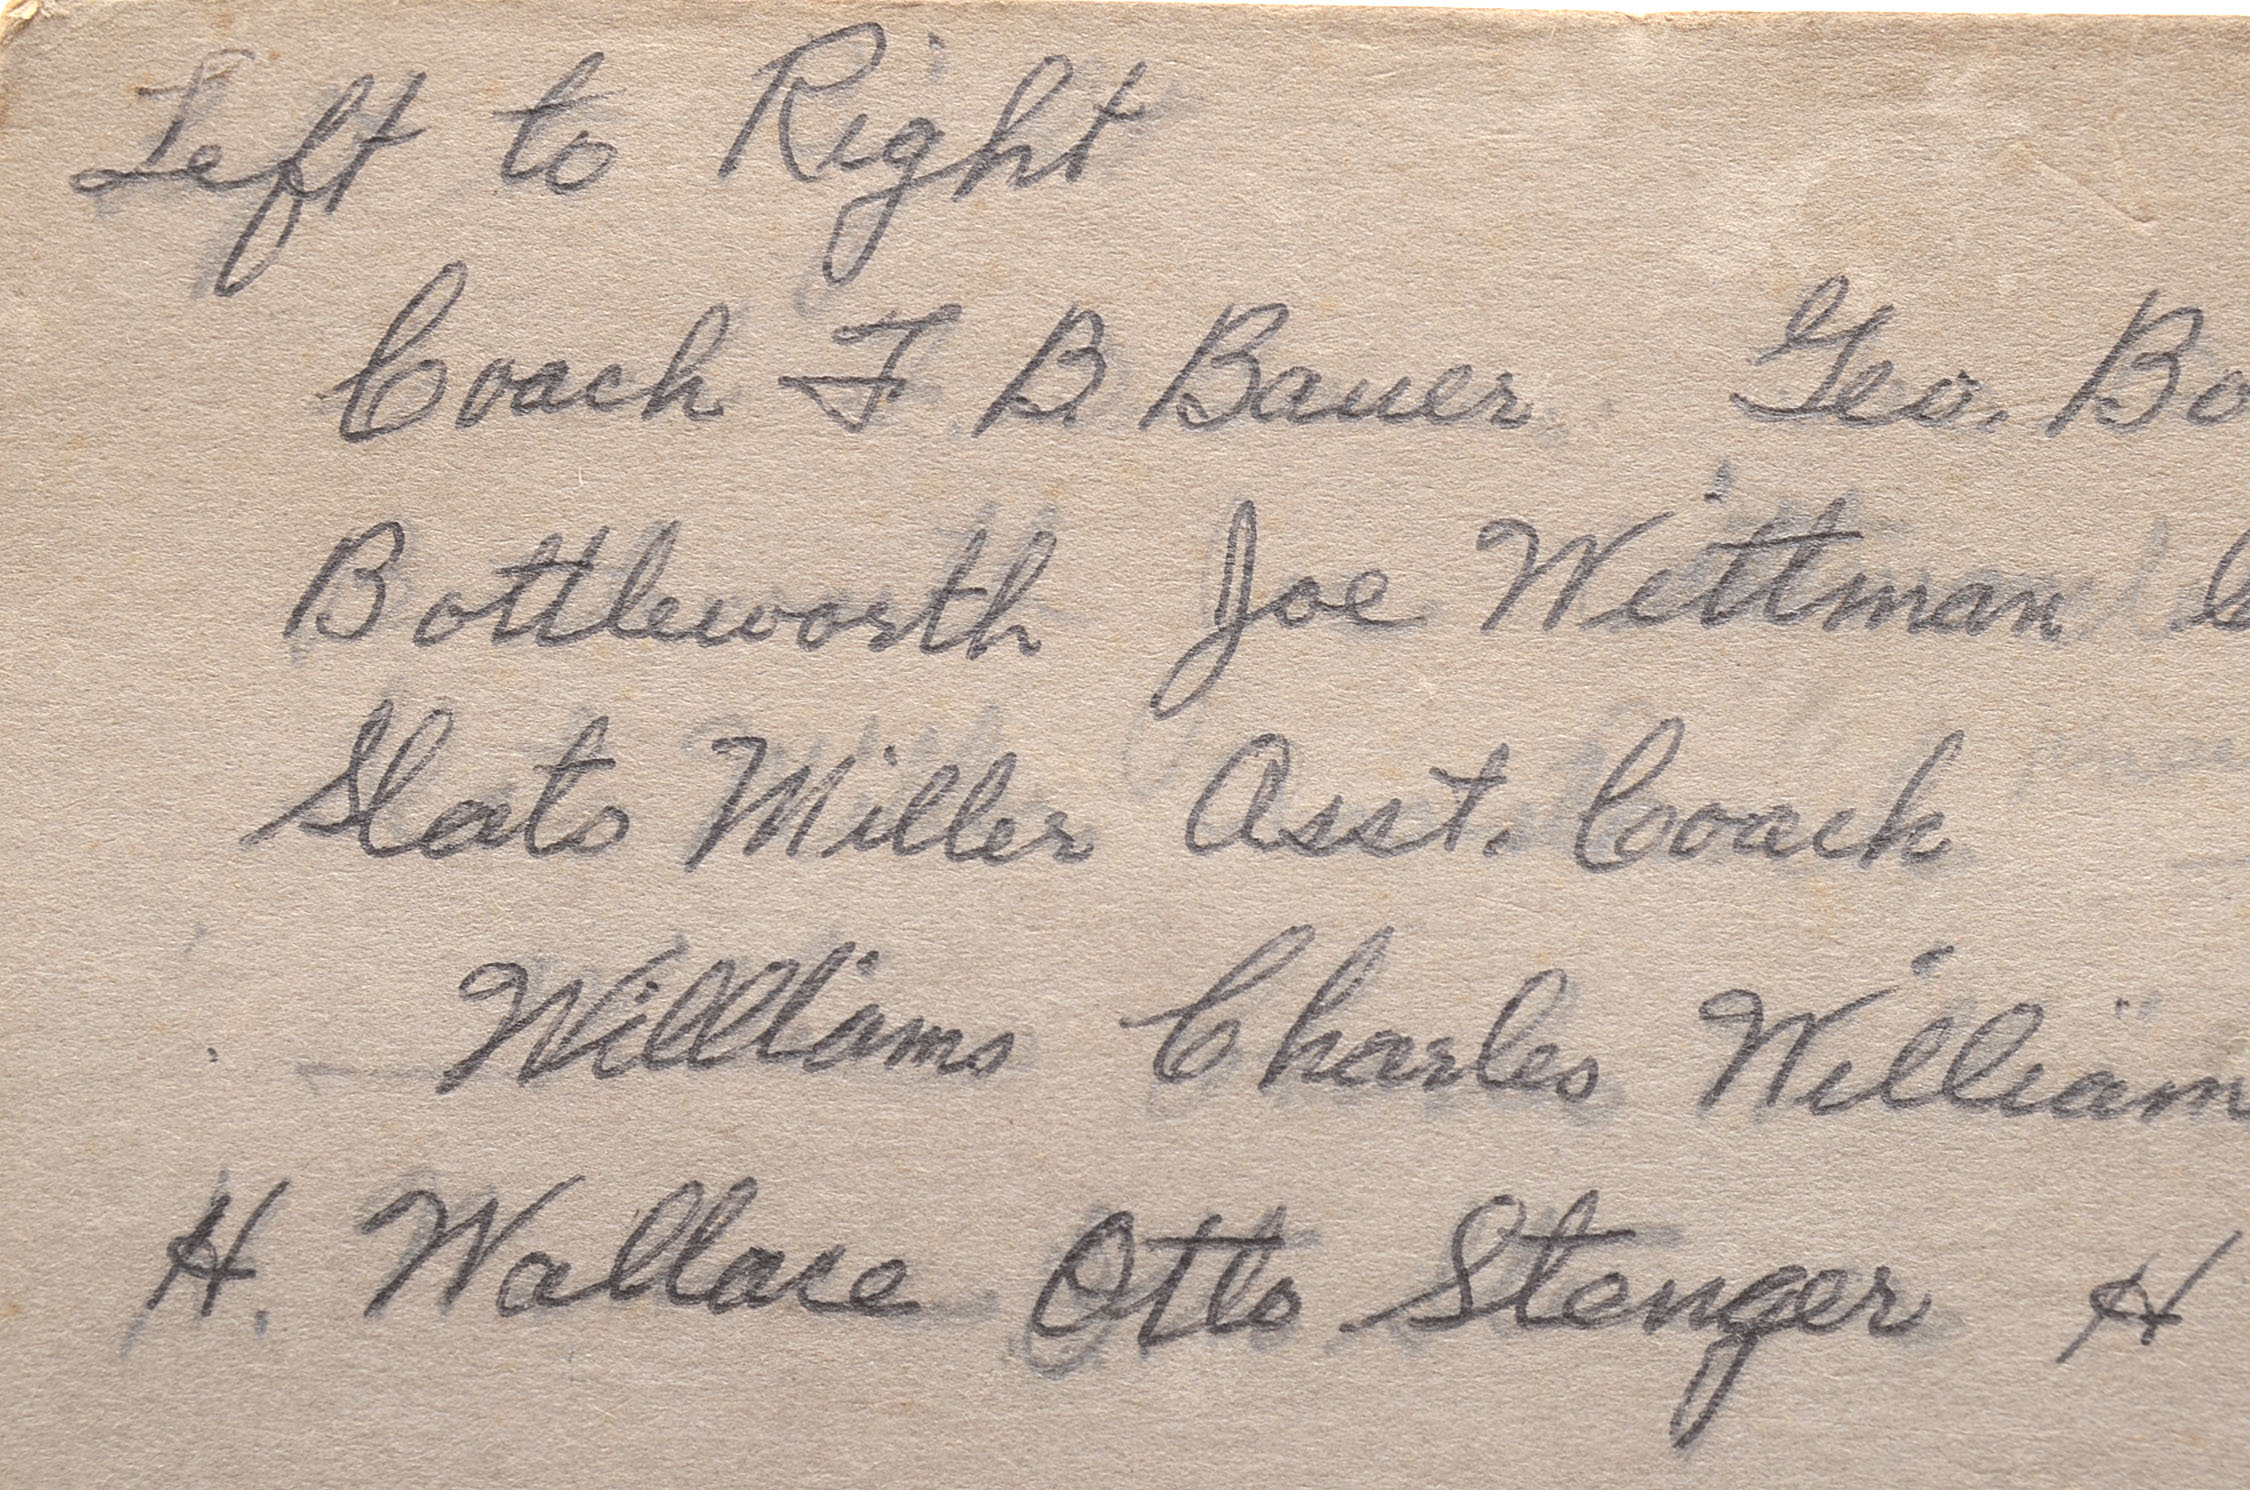 Left to Right
Coach F B. Bauer Geo. Bo
Bottleworth Joe Wittman
Slats Miller Asst. Coach
Williams Charles William
H. Wallace Otto Stenger H